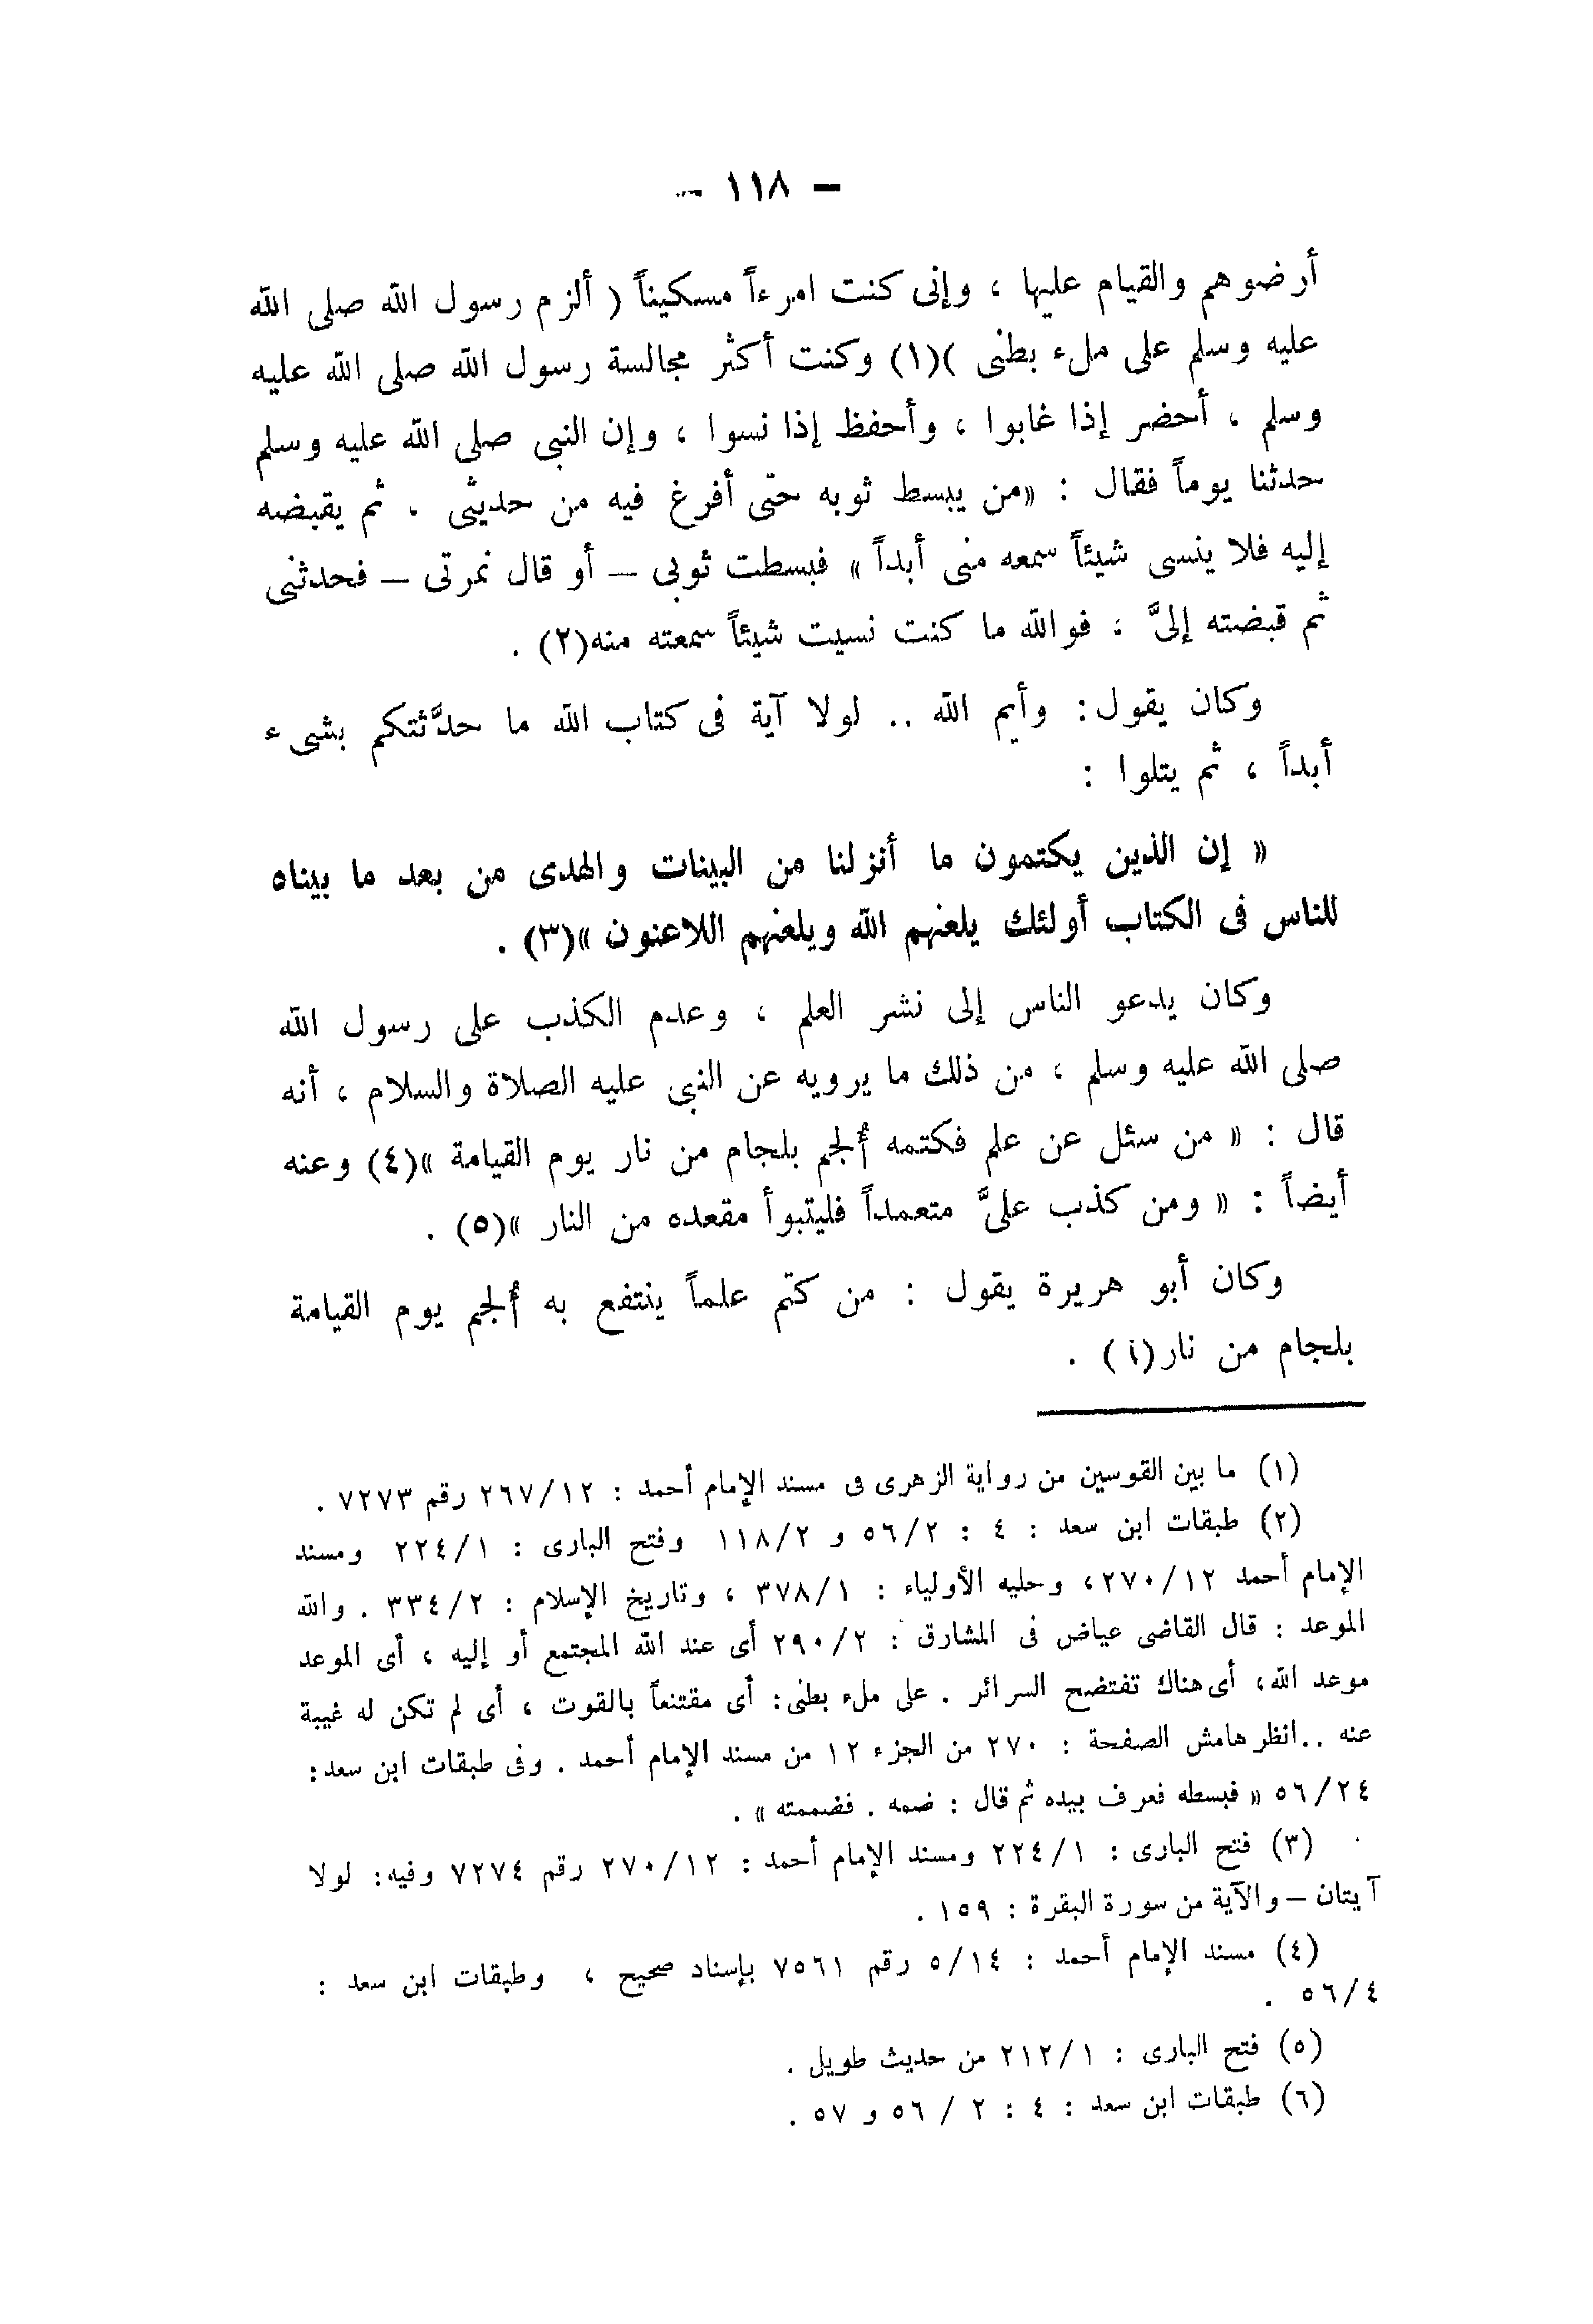 – ١١٨ –
أرضوهم والقيام عليها ، وإنى كنت امرءاً مسكيناً ( ألزم رسول الله صلى الله
عليه وسلم على ملء بطنى )(١) وكنت أكثر مجالسة رسول الله صلى الله عليه
وسلم ، أحضر إذا غابوا ، وأحفظ إذا نسوا ، وإن النبى صلى الله عليه وسلم
حدثنا يوماً فقال : «من يبسط ثوبه حتى أفرغ فيه من حديثى . ثم يقبضه
إليه فلا ينسى شيئاً سمعه منى أبداً » فبسطت ثوبى – أو قال نمرتى – فحدثنى
ثم قبضته إلىَّ ؛ فوالله ما كنت نسيت شيئاً سمعته منه(٢) .
وكان يقول: وأيم الله .. لولا آية فى كتاب الله ما حدَّثتكم بشىء
أبداً ، ثم يتلوا :
« إن الذين يكتمون ما أنزلنا من البينات والهدى من بعد ما بيناه
للناس فى الكتاب أولئك يلعنهم الله ويلعنهم اللاعنون »(٣) .
وكان يدعو الناس إلى نشر العلم ، وعدم الكذب على رسول الله
صلى الله عليه وسلم ، من ذلك ما يرويه عن النبى عليه الصلاة والسلام ، أنه
قال : « من سئل عن علم فكتمه أُلجم بلجام من نار يوم القيامة »(٤) وعنه
أيضاً : « ومن كذب علىَّ متعمداً فليتبوأ مقعده من النار »(٥) .
وكان أبو هريرة يقول : من كتم علماً ينتفع به أُلجم يوم القيامة
بلجام من نار(٦) .
(١) ما بين القوسين من رواية الزهرى فى مسند الإمام أحمد : ٢٦٧/١٢ رقم ٧٢٧٣ .
(٢) طبقات ابن سعد : ٤ : ٥٦/٢ و ١١٨/٢ وفتح البارى : ٢٢٤/١ ومسند
الإمام أحمد ٢٧٠/١٢، وحليه الأولياء : ٣٧٨/١ ، وتاريخ الإسلام : ٣٣٤/٢ . والله
الموعد : قال القاضى عياض فى المشارق : ٢٩٠/٢ أى عند الله المجتمع أو إليه ، أى الموعد
موعد الله، أى هناك تفتضح السرائر . على ملء بطنى: أى مقتنعاً بالقوت ، أى لم تكن له غيبة
عنه ..انظر هامش الصفحة : ٢٧٠ من الجزء ١٢ من مسند الإمام أحمد . وفى طبقات ابن سعد:
٥٦/٢٤ « فبسطه فعرف بيده ثم قال : ضمه . فضممته » .
(٣) فتح البارى : ٢٢٤/١ ومسند الإمام أحمد : ٢٧٠/١٢ رقم ٧٢٧٤ وفيه: لولا
آيتان – والآية من سورة البقرة : ١٥٩ .
(٤) مسند الإمام أحمد : ٥/١٤ رقم ٧٥٦١ بإسناد صحيح ، وطبقات ابن سعد :
٥٦/٤ .
(٥) فتح البارى : ٢١٢/١ من حديث طويل .
(٦) طبقات ابن سعد : ٤ : ٢ / ٥٦ و ٥٧ .